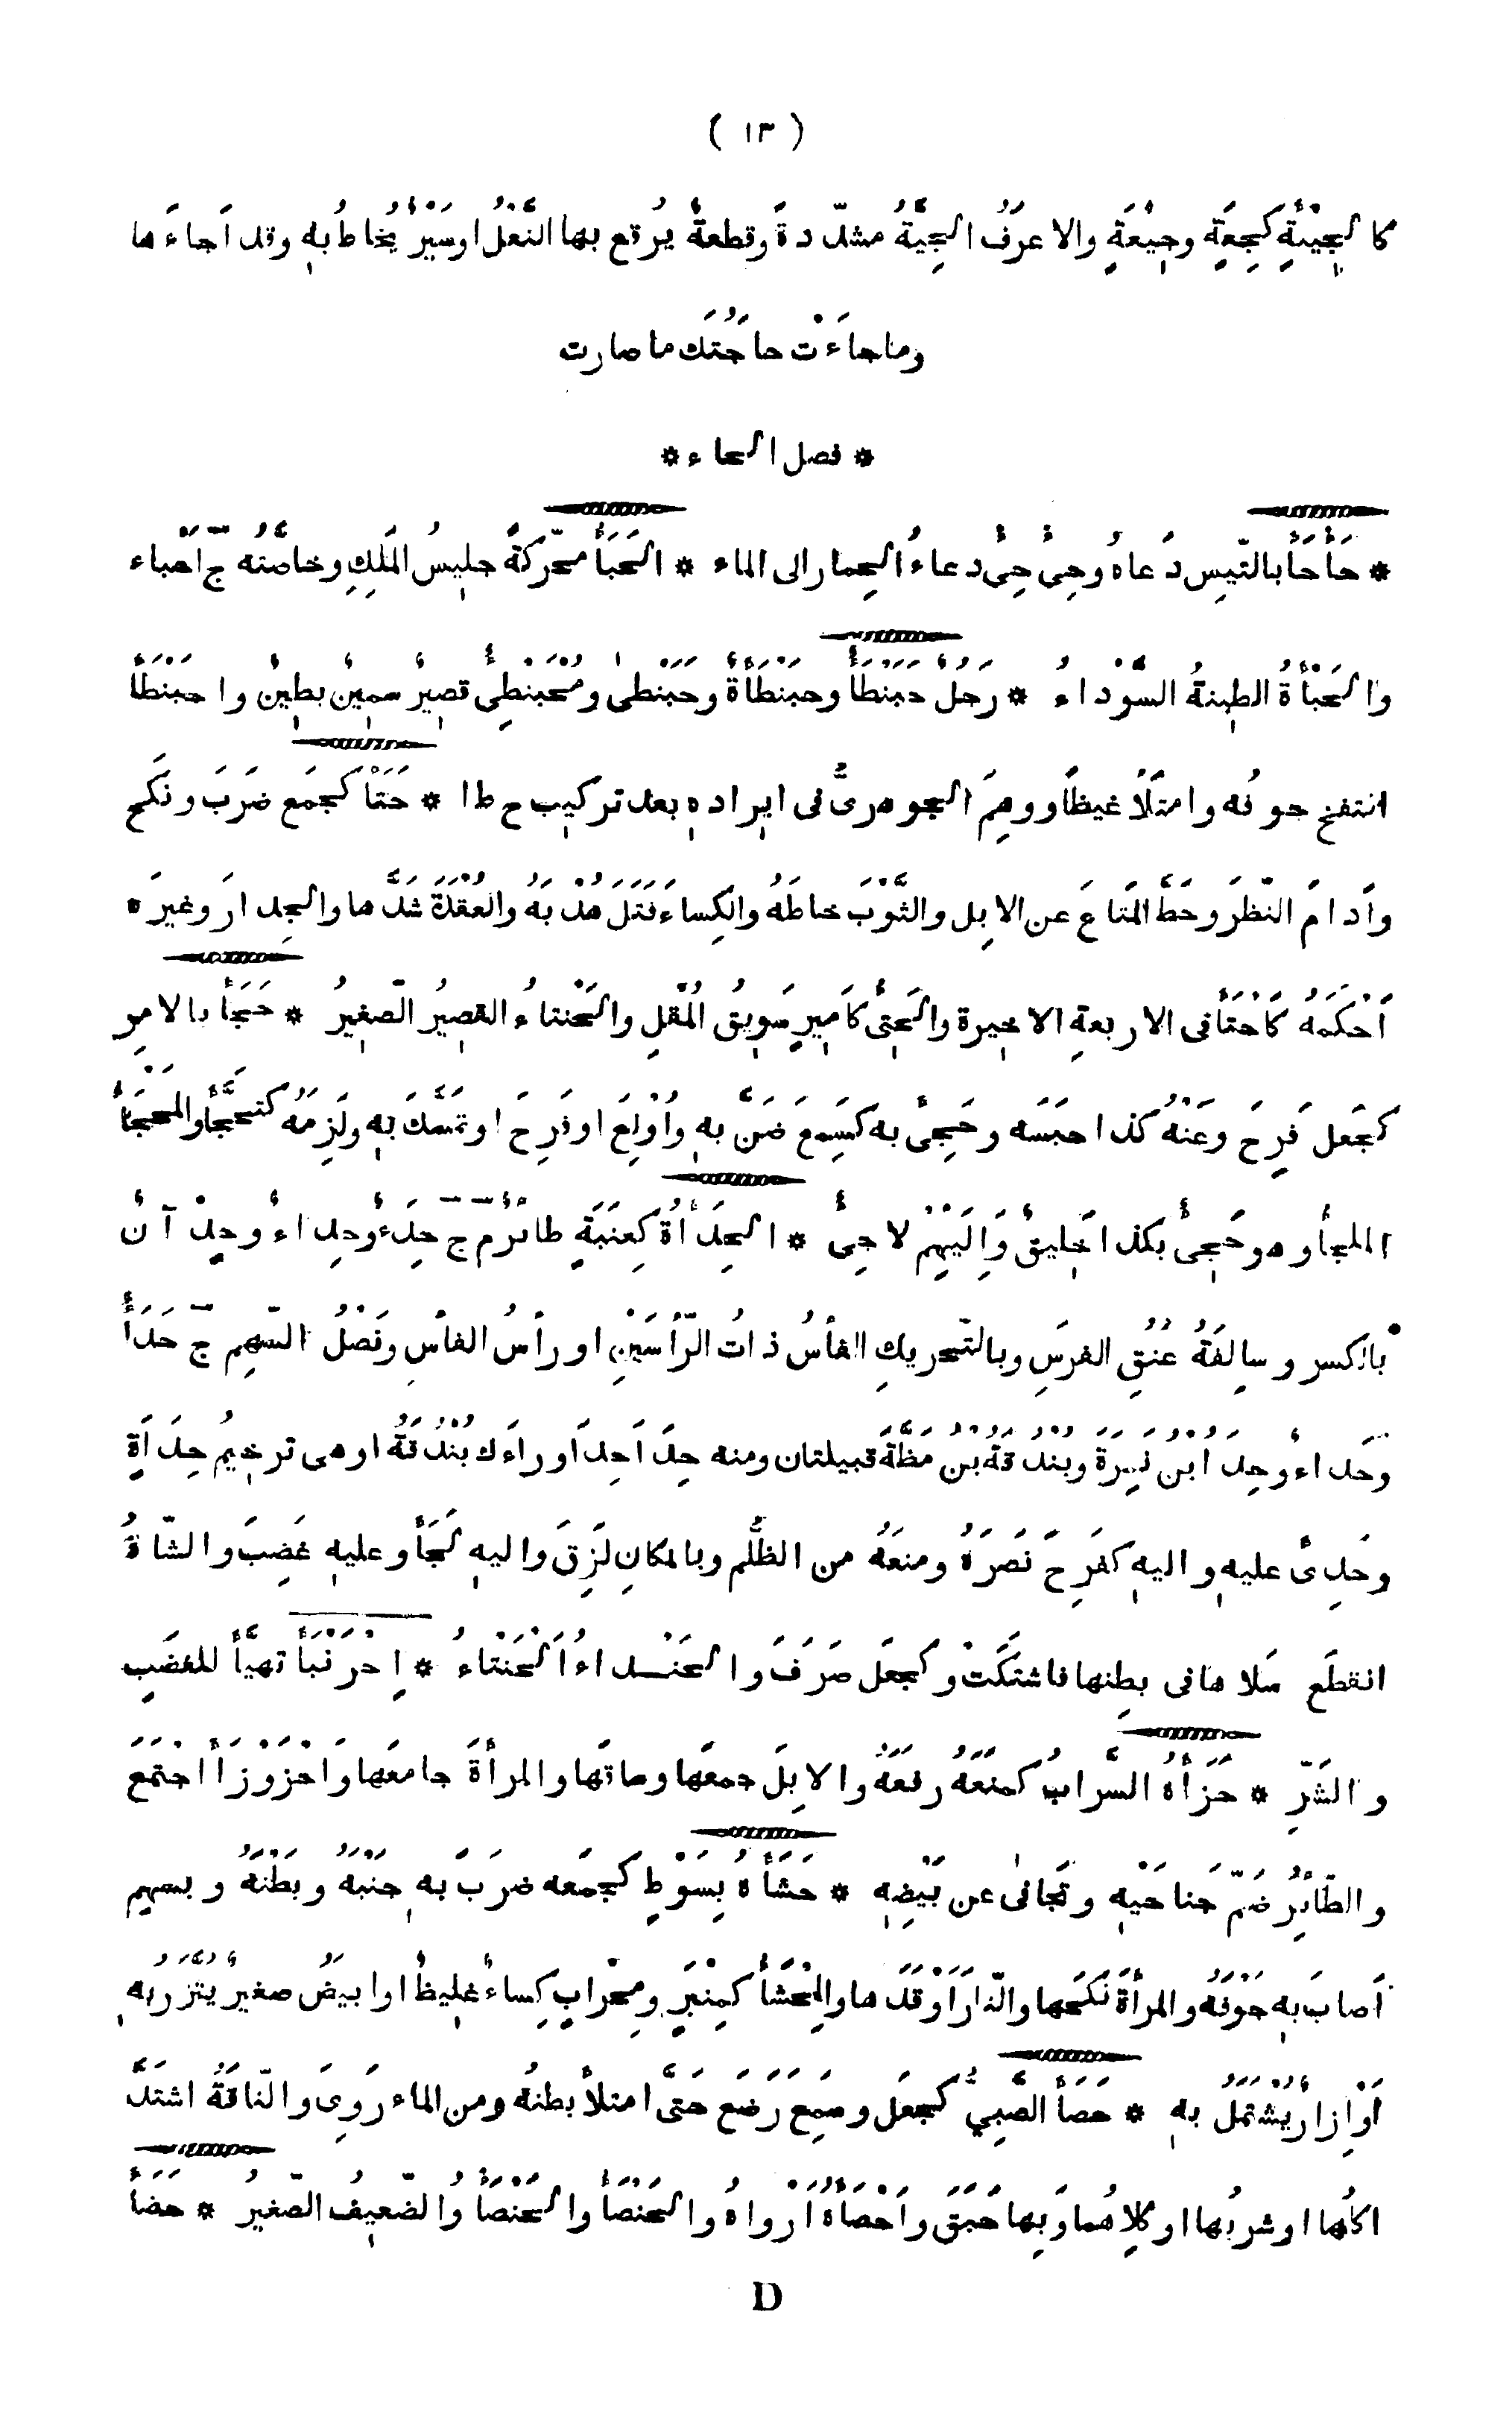 ( ١٣ )
كالجِيْئَةِ كَجِعَةٍ وجِيْعَةٍ والاعرَفُ الجِيَّةُ مشدّدةً وقطعةٌ يُرقع بها النَّعْلُ اوسَيْرٌ يُخاطُ به وقد اَجاءَها
وماجاءَتْ حاجَتُكَ ماصارت
* فصل الحاء *
* حَأْحَأَ بالتّيس دَعاهُ وحِئْ حِئْ دعاءُ الحِمار الى الماء * الحَبَأُ محرّكةً جليسُ المَلِكِ وخاصّتُه جّ اَحْباء
والحَبْأَةُ الطينةُ السَّوْداءُ * رَجُلٌ حَبَنْطَأٌ وحَبَنْطَأَةٌ وحَبَنْطىً ومُحْبَنْطِئٌ قصيرٌ سمينٌ بطينٌ واحبَنْطَأَ
انتفخ جوفُه وامتلَأَ غيظًا ووهِمَ الجوهرىُّ فى ايرادِهِ بعد تركيب ح ط ا * حَتَأَ كَجمَع ضَرَبَ ونكَح
واَدامَ النّظرَ وحَطَّ المَتاعَ عن الابل والثَّوْبَ خاطَهُ والكِساءَ فتَلَ هُدْبَهُ والعُقْدَةَ شَدَّها والجِدارَ وغيرَه
اَحْكَمهُ كاَحْتَأَ فى الاربعةِ الاخيرة والحَتِئُ كاَميرٍ سَويقُ المُقْلِ والحِنْتاءُ القصيرُ الصّغيرُ * حَجَأَ بالامرِ
كجَعَل فَرِحَ وعَنْهُ كذا حبَسَه وحَجِئَ به كسَمِعَ ضَنَّ به واُوْلِعَ اوفَرِحَ اوتمَسَّكَ به ولَزِمَهُ كتحَجَّأَ والمَحْجَأُ
الملجأُ وهوحَجِئٌ بكذا خَليقٌ وَاِلَيْهِمْ لاجِئٌ * الحِدَأَةُ كعِنَبَةٍ طائرٌ م ج حِدَءٌ وحِداءٌ وحِدْآنٌ
بالكسر وسالِفَةُ عُنُقِ الفرَسِ وبالتّحريكِ الفأسُ ذاتُ الرّأسَيْنِ اورأسُ الفأسِ ونَصْلُ السّهم جّ حَدَأٌ
وحَداءٌ وحِدَأُ بْنُ نَمِرَةَ وبُنْدُقَةُ بْنُ مَظَّةَ قبيلتان ومنه حِدَأَ حِدَأَ وراءَكَ بُنْدُقَةُ اوهى ترخيمُ حِدَأَةٍ
وحَدِئَ عليه واليه كفَرِحَ نَصَرَهُ ومنعَهُ من الظُّلم وبالمكانِ لَزِقَ واليه لَجَأَ وعليه غَضِبَ والشّاةُ
انقطَع سَلاها فى بطِنها فاشتكَتْ وكجعَل صَرَفَ والحِنْداءُ الحِنْتاءُ * اِحْرَنْبَأَ تهيَّأَ للغضَبِ
والشَرِّ * حَزَأَهُ السَّرابُ كمنَعَهُ رفعَهُ والابِلَ جمعَها وساقَها والمرأةَ جامعَها واَحْزَوْزَأَ اجتمَعَ
والطّائرُ ضَمّ جناحَيْه وتجَافىٰ عن بَيْضِه * حَشَأَهُ بِسَوْطٍ كجَمَعه ضرَبَ به جَنْبَهُ وبَطْنَهُ وبسهمٍ
اَصابَ به جَوْفَهُ والمرأةَ نَكَحَها والنّارَ اَوْقَدَها والمِحْشَأُ كمِنْبَرٍ ومِحْرابٍ كِساءٌ غليظٌ اوابيَضُ صغيرٌ يُتّزَرُ بهِ
اَوْاِزارٌ يُشْتمَلُ به * حَصَأَ الصَّبِيُّ كجعَل وسَمِعَ رَضَعَ حَتَّى امتلأ بطنُه ومن الماء رَوِىَ والنّاقَةُ اشتدَّ
اكلُها اوشربُها اوكِلاهُما وَبِها حَبَقَ واَحْصَأَهُ اَرْواهُ والحِنْصَأُ والحِنْصَأْوُ الضّعيفُ الصّغيرُ * حَضَأَ
D